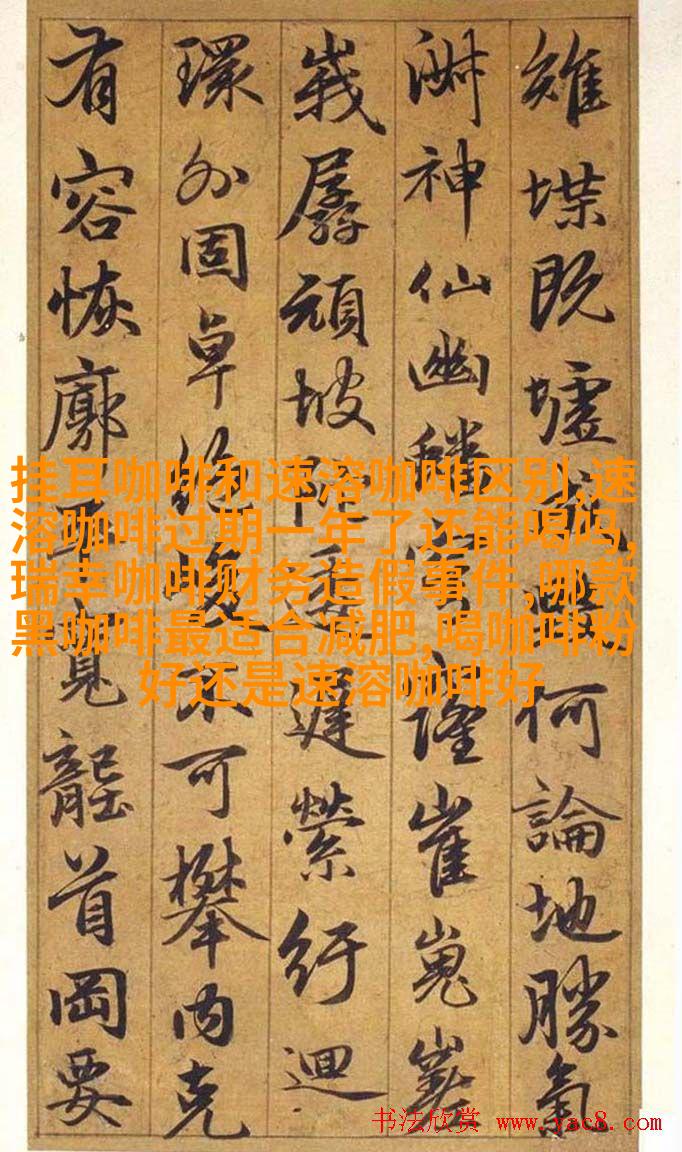 雉堞既墟何論地勝氣
淋神仙幽蟠穹窿崔嵬嵯
峩孱頑坡陀逶遲縈紆迴
環外固卓絶不可攀内克
有容恢廓平寬龍首岡要
挂耳咖啡和速溶咖啡区别,速
溶咖啡过期一年了还能喝吗,
瑞幸咖啡财务造假事件,哪款
黑咖啡最适合减肥,喝咖啡粉
好还是速溶咖啡好
书法欣赏 www.yac8.com